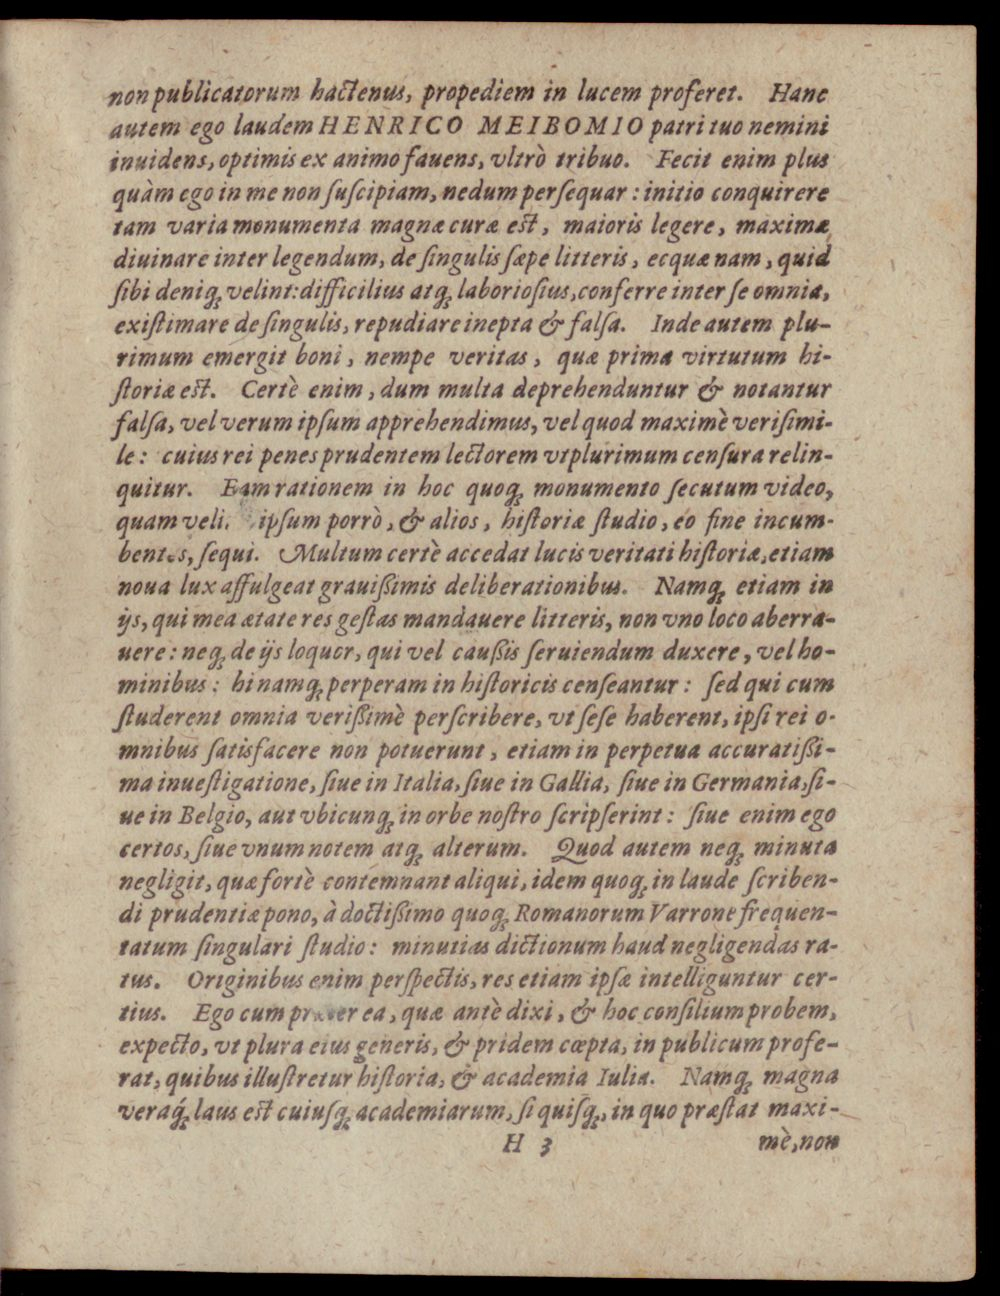 non publicatorum hactenus, propediem in lucem proferet. Hanc
autem ego laudem HENRICO MEIBOMIO patri tuo nemini
inuidens, optimis ex animo fauens, vltrò tribuo. Fecit enim plus
quàm ego in me non ſuſcipiam, nedum perſequar: initio conquirere
tam varia monumenta magnæ curæ eſt, maioris legere, maximæ
diuinare inter legendum, de ſingulis ſæpe litteris, ecquæ nam, quid
ſibi deniq; velint: difficilius atq; laborioſius, conferre inter ſe omnia,
exiſtimare de ſingulis, repudiare inepta & falſa. Inde autem plu-
rimum emergit boni, nempe veritas, quæ prima virtutum hi-
ſtoriæ eſt. Certè enim, dum multa deprehenduntur & notantur
falſa, vel verum ipſum apprehendimus, vel quod maximè veriſimi-
le: cuius rei penes prudentem lectorem vtplurimum cenſura relin-
quitur. Eam rationem in hoc quoq; monumento ſecutum video,
quam veli. ipſum porrò, & alios, hiſtoriæ ſtudio, eo fine incum-
bentes, ſequi. Multum certè accedat lucis veritati hiſtoriæ, etiam
noua lux affulgeat grauißimis deliberationibus. Namq; etiam in
ijs, qui mea ætate res geſtas mandauere litteris, non vno loco aberra-
uere: neq; de ijs loquor, qui vel caußis ſeruiendum duxere, vel ho-
minibus: hi namq; perperam in hiſtoricis cenſeantur: ſed qui cum
ſtuderent omnia verißimè perſcribere, vt ſeſe haberent, ipſi rei o-
mnibus ſatisfacere non potuerunt, etiam in perpetua accuratißi-
ma inueſtigatione, ſiue in Italia, ſiue in Gallia, ſiue in Germania, ſi-
ue in Belgio, aut vbicunq; in orbe noſtro ſcripſerint: ſiue enim ego
certos, ſiue vnum notem atq; alterum. Quod autem neq; minuta
negligit, quæ fortè contemnant aliqui, idem quoq; in laude ſcriben-
di prudentiæ pono, à doctißimo quoq; Romanorum Varrone frequen-
tatum ſingulari ſtudio: minutias dictionum haud negligendas ra-
tus. Originibus enim perſpectis, res etiam ipſæ intelliguntur cer-
tius. Ego cum præter ea, quæ antè dixi, & hoc conſilium probem,
expecto, vt plura eius generis, & pridem cœpta, in publicum profe-
rat, quibus illuſtretur hiſtoria, & academia Iulia. Namq; magna
veraq́; laus eſt cuiuſq; academiarum, ſi quiſq;, in quo præſtat maxi-
H 3 mè, non